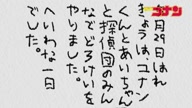 コナン
月29日はれ
きょうは、コナン
くんとあいちゃん
と探偵団のみん
なでどろけいを
やりました。
へいわな一日
でした。